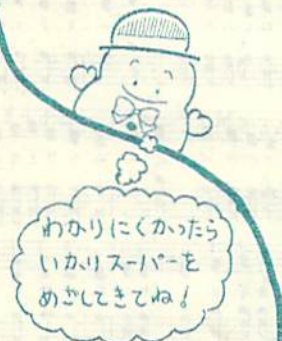 わかりにくかったら
いかりスーパーを
めざしてきてね!